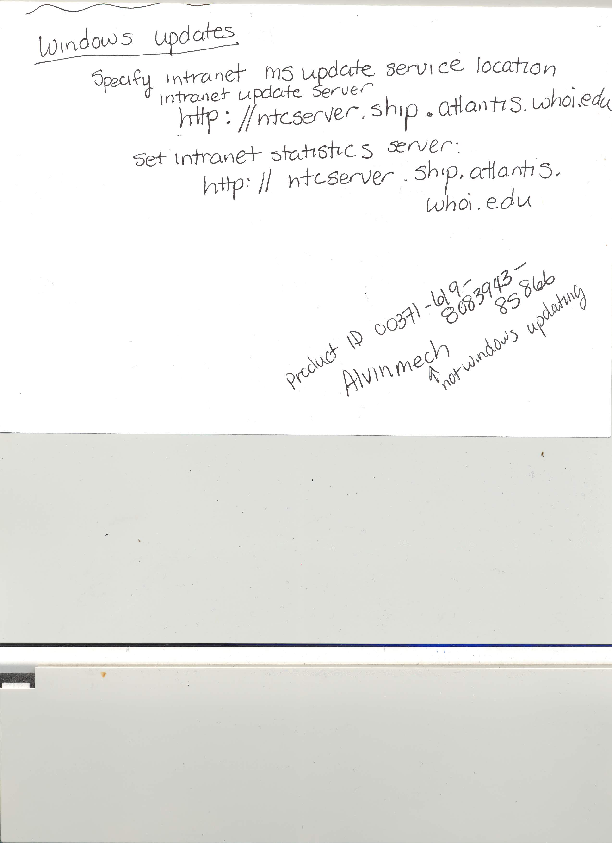 Windows updates
Specify intranet ms update service location
intranet update server
http://ntcserver.ship.atlantis.whoi.edu
Set intranet statistics server:
http:// ntcserver.ship.atlantis.
whoi.edu
Product ID 00371-619-
8083943-
85866
Alvinmech
↑
not windows updating